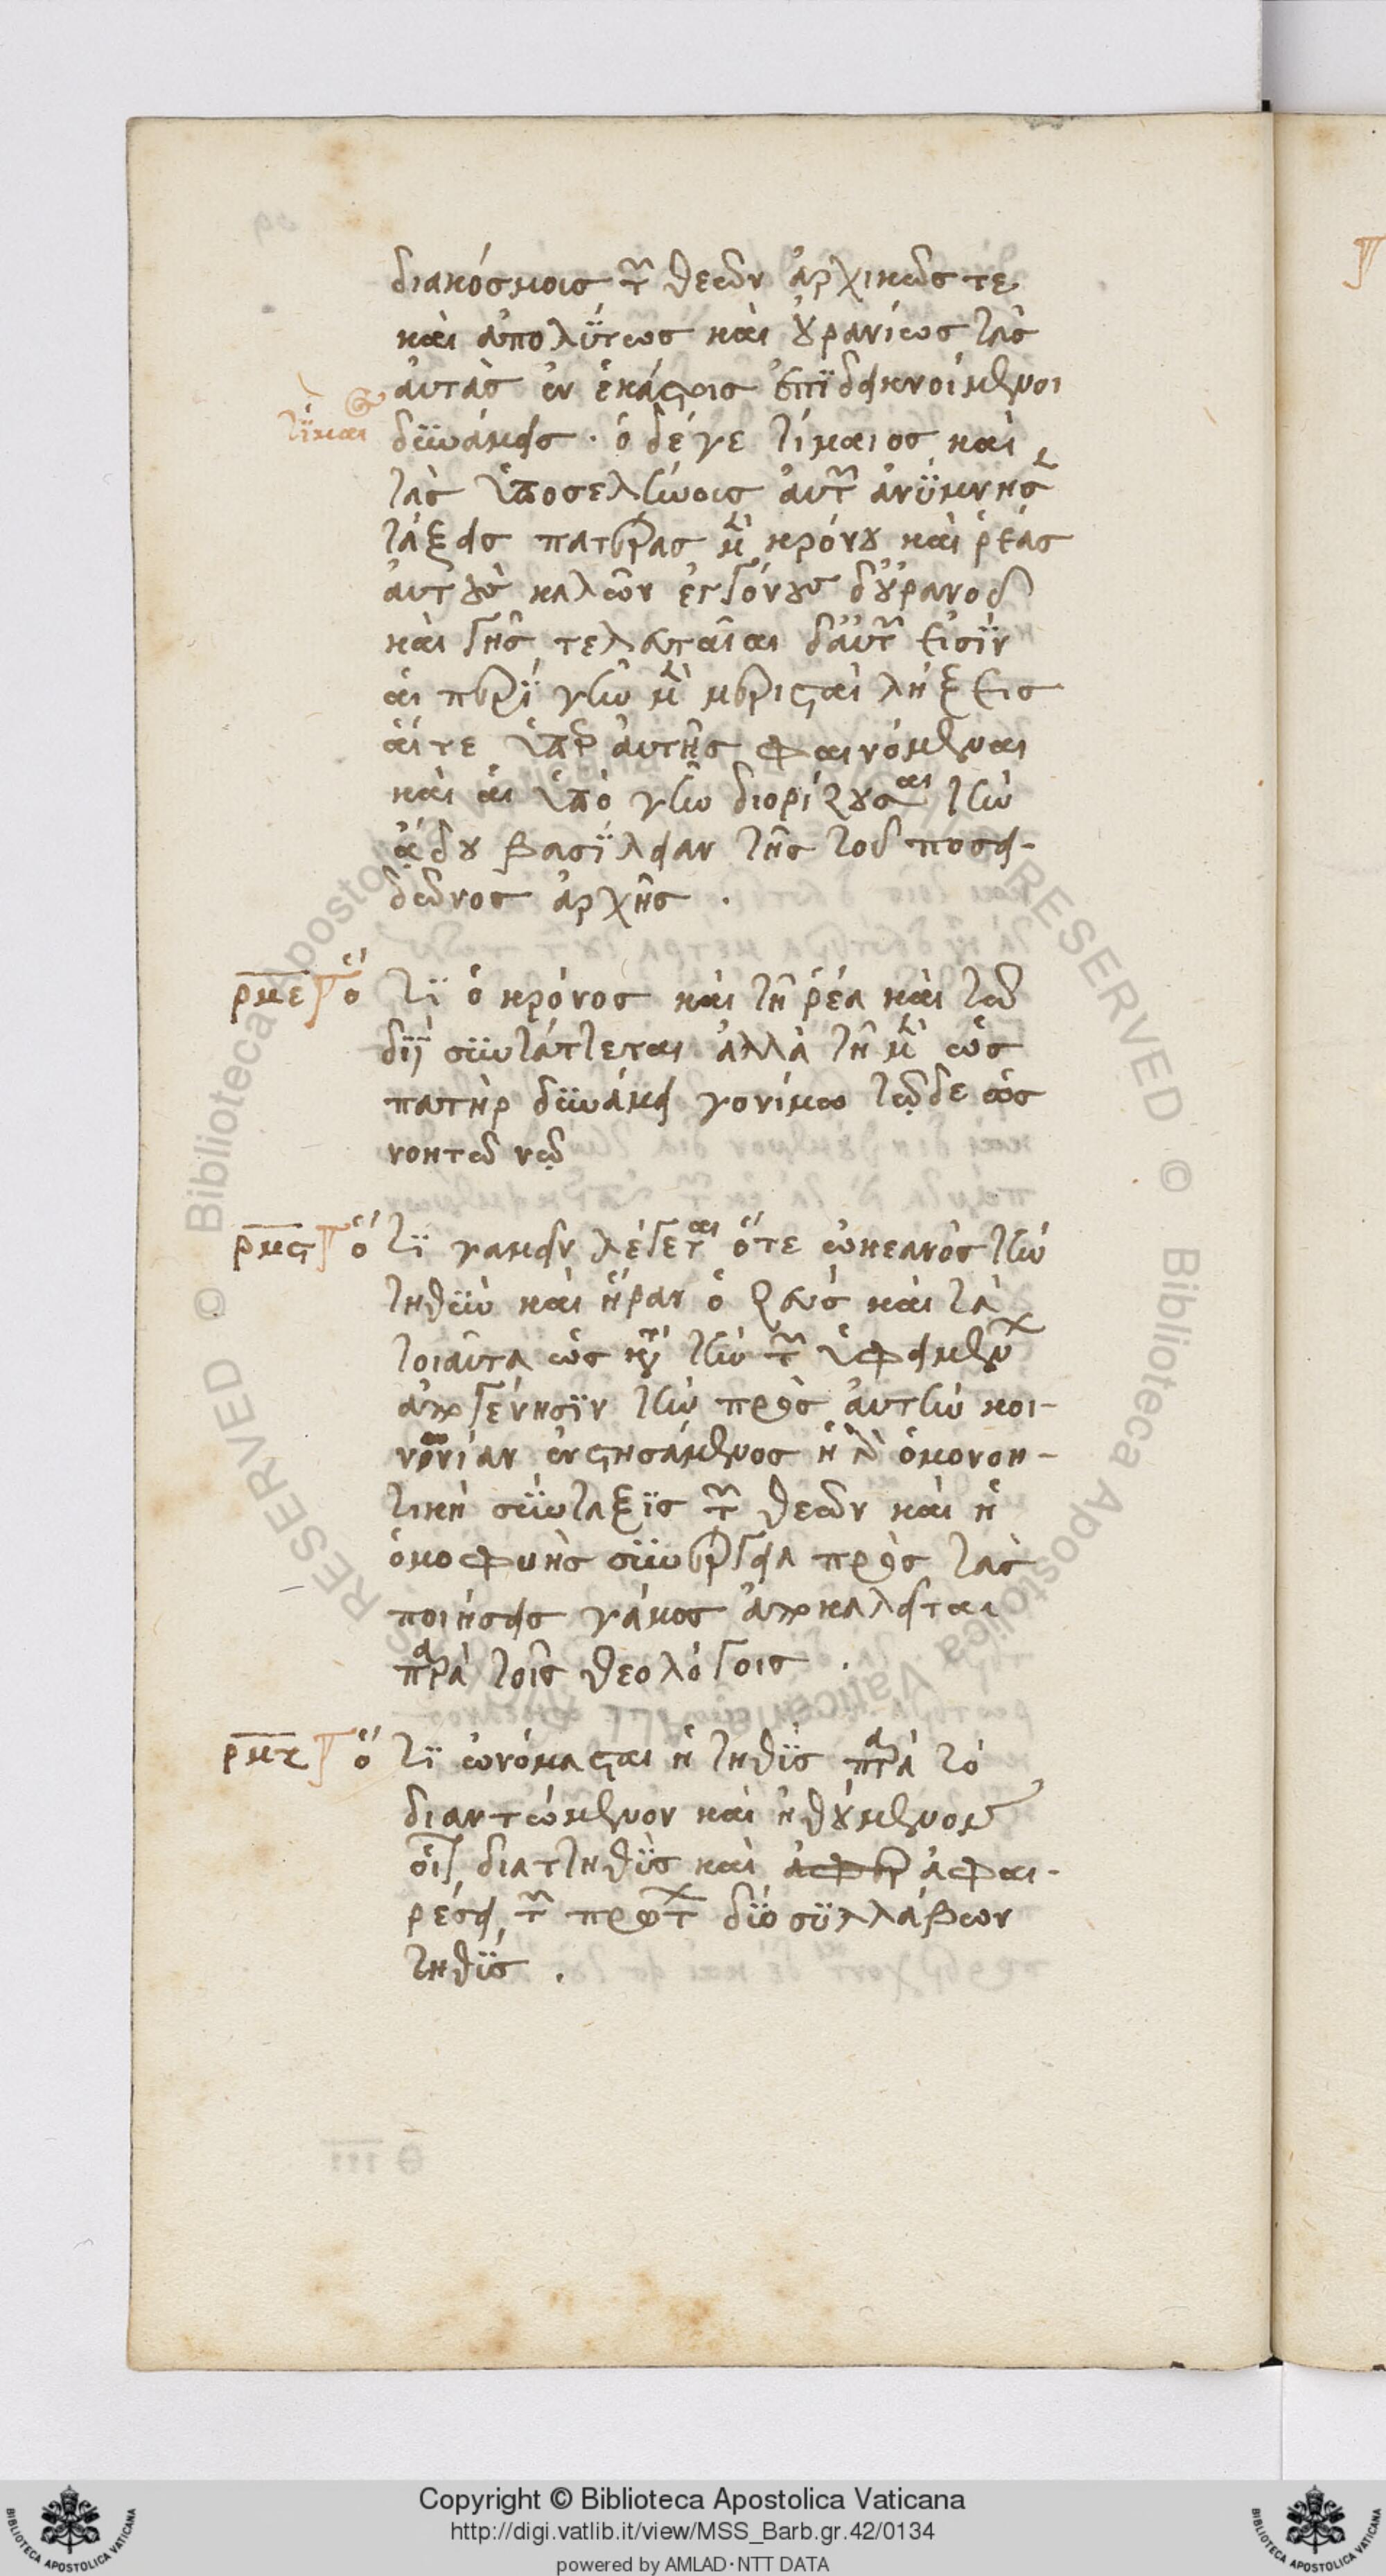 διακόσμοις τῶν θεῶν ἀρχικῶς τε
καὶ ἀπολύτως καὶ οὐρανίως τὰς
αὐτὰς ἐν ἑκάστοις ἐπιδεικνύμενοι
τίμαι
δυνάμεις · ὁ δέ γε τίμαιος καὶ
τὰς ὑποσελήνοις αὐτῶν ἀνύμνησε
τάξεις πατέρας μὲν κρόνου καὶ ῥέας
αὐτοὺς καλῶν ἐκγόνους δ' οὐρανοῦ
καὶ γῆς τελευταῖαι δ' αὐτῶν εἰσὶν
αἱ περὶ γῆν μὲν μερισταὶ λήξεις
αἵ τε ὑπὲρ αὐτῆς φαινόμεναι
καὶ αἱ ὑπὸ γῆν διορίζουσαι τὴν
ᾅδου βασιλείαν τῆς τοῦ ποσει-
δῶνος ἀρχῆς .
ρμε ὅ τι ὁ κρόνος καὶ τῇ ῥέᾳ καὶ τῷ
διῒ συντάττεται ἀλλὰ τῇ μὲν ὡς
πατὴρ δυνάμει γονίμω τῷ δε ὡς
νοητῶ νῷ
ρμς ὅ τι γαμεῖν λέγεται ὅτε ὠκεανὸς τὴν
τηθὺν καὶ ἥραν ὁ ζεὺς καὶ τὰ
τοιαῦτα ὡς κατὰ τὴν τῶν ὑφειμένων
ἀπογέννησιν τὴν πρὸς αὐτὴν κοι-
νωνίαν ἐνστησάμενος ἡ γὰρ ὁμονοη-
τικὴ σύνταξις τῶν θεῶν καὶ ἡ
ὁμοφυὴς συνεργεία πρὸς τὰς
ποιήσεις γάμος ἀποκαλεῖται
παρὰ τοῖς θεολόγοις .
ρμζ ὅ τι ὠνόμασται ἡ τηθὺς παρὰ τὸ
διαττώμενον καὶ ἠθούμενον
οἷον διαττηθὺς καὶ ἀφαι-
ρέσει τῶν πρώτων δύο συλλάβων
τηθύς .
Copyright © Biblioteca Apostolica Vaticana
http://digi.vatlib.it/view/MSS_Barb.gr.42/0134
powered by AMLAD·NTT DATA